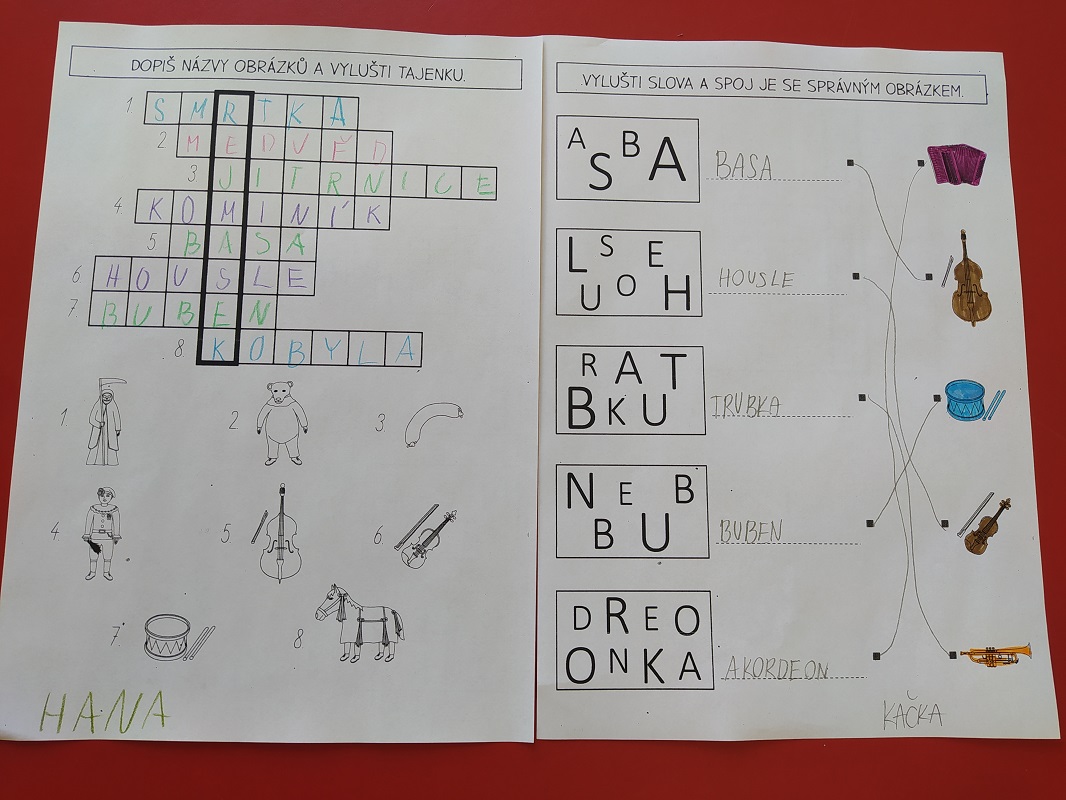 DOPIŠ NÁZVY OBRÁZKŮ A VYLUŠTI TAJENKU.
1. SMRTKA
2 MEDVĚD
3 JITRNICE
4 KOMINÍK
5 BASA
6. HOUSLE
7 BUBEN
8. KOBYLA
1 2 3
4 5 6
7. 8
HANA
VYLUŠTI SLOVA A SPOJ JE SE SPRÁVNÝM OBRÁZKEM.
A S B A BASA
L S E U O H HOUSLE
R A T B K U TRUBKA
N E B B U BUBEN
D R E O O N K A AKORDEON
KAČKA